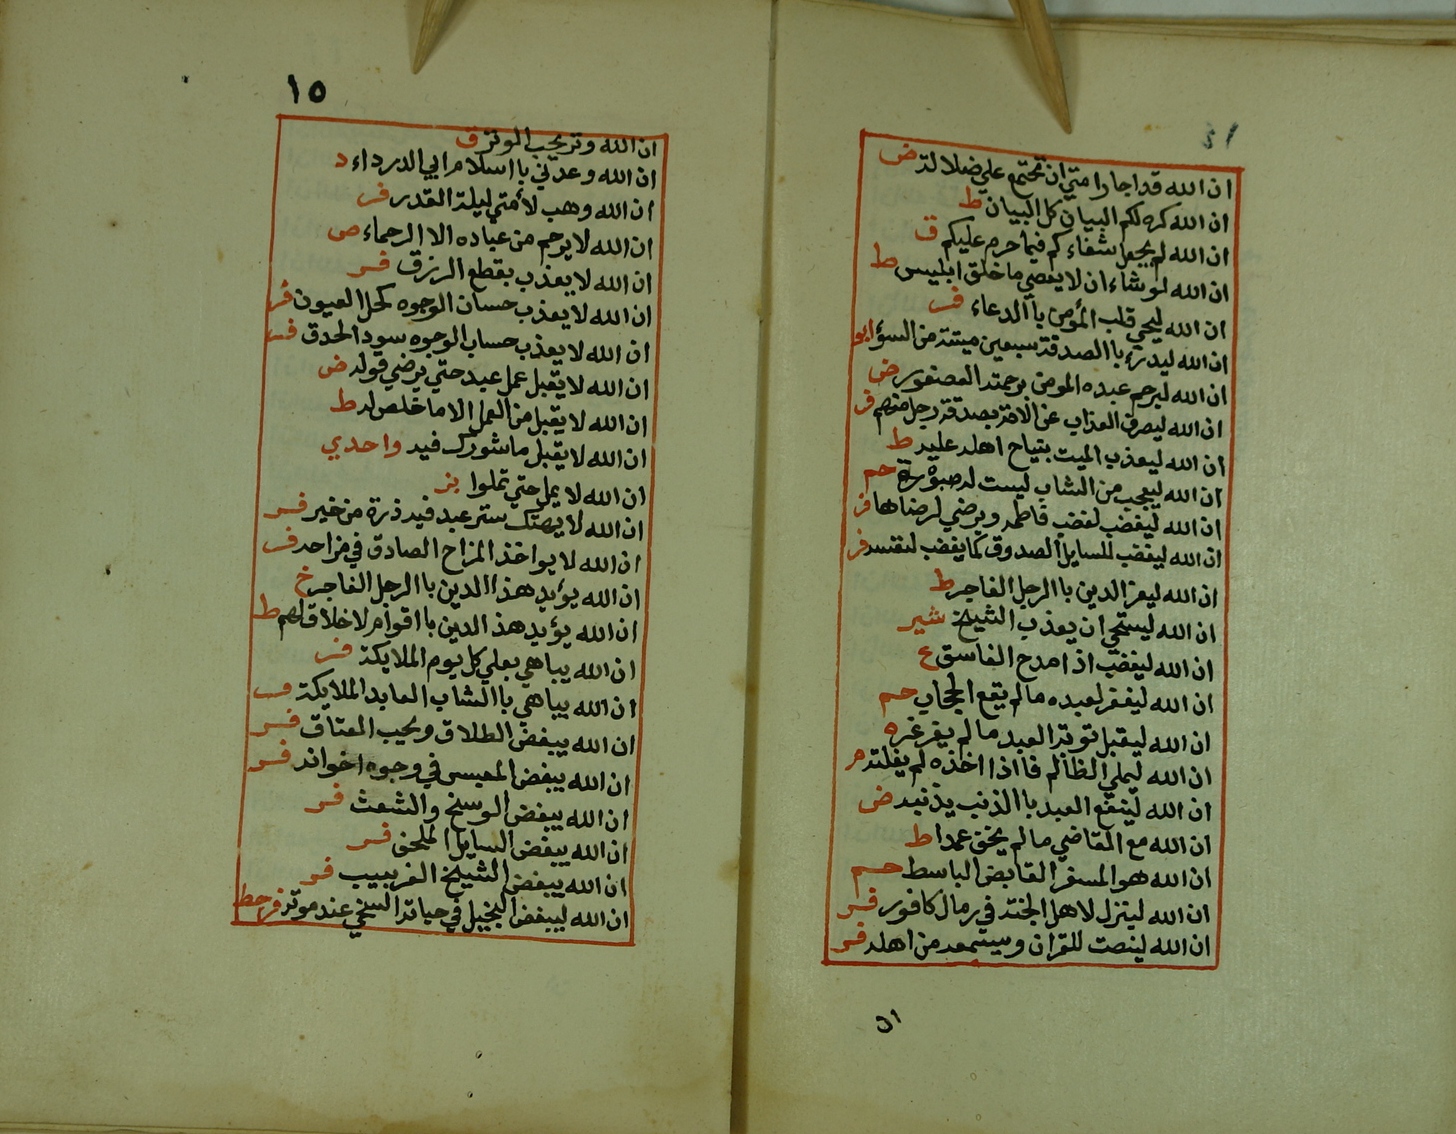 ان الله قد اجار امتي ان تجتمع علي ضلالته ض
ان الله كره لكم البيان كل البيان ط
ان الله لم يجعل شفاءكم فيما حرم عليكم ق
ان الله لو شاء ان لا يعصي ما خلق ابليس ط
ان الله ليحي قلب المؤمن باالدعاء فر
ان الله ليدرء باالصدقة سبعين ميتة من السؤ ابو
ان الله ليرحم عبده المومن برحمته العصفور ض
ان الله ليصرف العذاب عن الامة بصدقة رجل منهم فر
ان الله ليعذب الميت بنياح اهله عليه ط
ان الله ليعجب من الشاب ليست له صبوة حم
ان الله ليغضب لغضب فاطمه ويرضي لرضاها فر
ان الله ليغضب للسايل الصدوق كما يغضب لنفسه فر
ان الله ليعز الدين باالرجل الفاجر ط
ان الله ليستحي ان يعذب الشيخ شير
ان الله ليغضب اذا مدح الفاسق ع
ان الله ليغفر لعبده ما لم يقع الحجاب حم
ان الله ليقبل توبة العبد ما لم يغرغر ه
ان الله ليملي الظالم فااذا اخذه لم يفلته م
ان الله لينفع العبد باالذنب يذنبه ض
ان الله مع القاضي ما لم يخف عمدا ط
ان الله هو المسعر القابض الباسط حم
ان الله لينزل لاهل الجنة في رمال كافور فر
ان الله لينصت للقران ويستمعه من اهله فر
ان
١٥
ان الله وتر يحب الوتر ق
ان الله وعدني بااسلام ابي الدرداء د
ان الله وهب لأمتي ليلة القدر فر
ان الله لا يرحم من عباده الا الرحماء ص
ان الله لا يعذب بقطع الرزق فر
ان الله لا يعذب حسان الوجوه كحل العيون فر
ان الله لا يعذب حساب الوجوه سود الحدق فر
ان الله لا يقبل عمل عبد حتي يرضي قوله ض
ان الله لا يقبل من العمل الا ما خلص له ط
ان الله لا يقبل ما شورك فيه واحدي
ان الله لا يمل حتي تملوا بز
ان الله لا يهتك ستر عبد فيه ذرة من خير فر
ان الله لا يواخذ المزاح الصادق في مزاحه فر
ان الله يؤيد هذا الدين باالرجل الفاجر خ
ان الله يؤيد هذ الدين بااقوام لا خلاق لهم ط
ان الله يباهي بعلي كل يوم الملايكة فر
ان الله يباهي باالشاب العابد الملايكة فر
ان الله يبغض الطلاق ويحب العتاق فر
ان الله يبغض المعبس في وجوه اخوانه فر
ان الله يبغض الوسخ والشعث فر
ان الله يبغض السايل الملحف فر
ان الله يبغض الشيخ الغربيب فر
ان الله ليبغض البخيل في حياته السخي عند موته فر خط